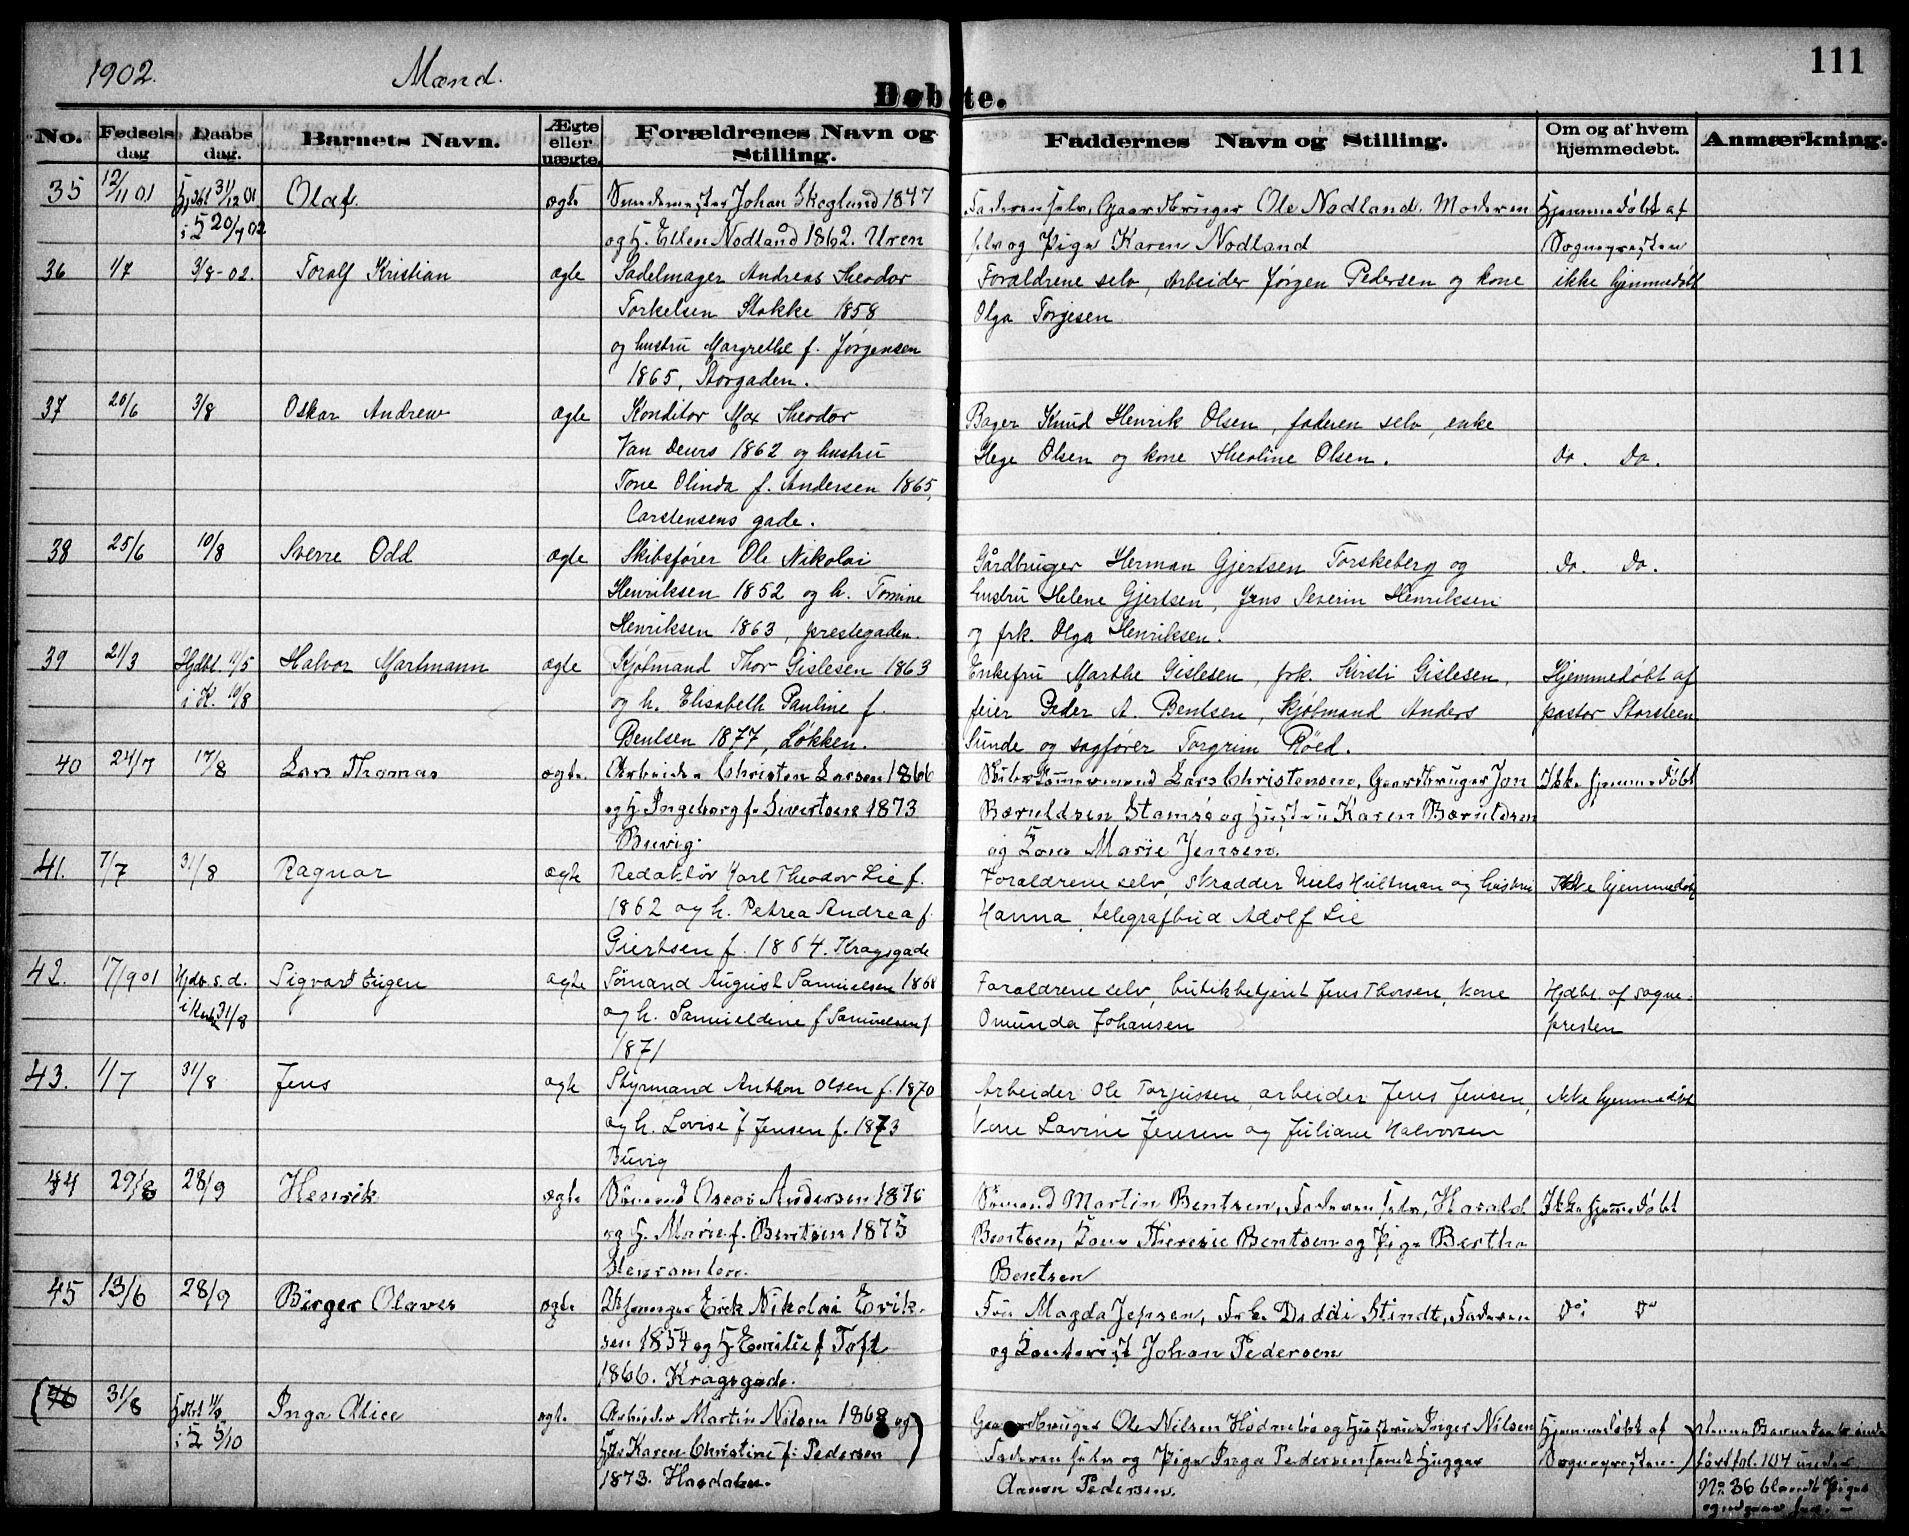 111
1902. Mænd.
Døbte.
No. Fødsels dag Daabs dag. Barnets Navn. Ægte eller uægte. Forældrenes Navn og Stilling. Faddernes Navn og Stilling. Om og af hvem hjemmedøbt. Anmærkning.
35 12/11 01 Hjdbt 31/12 01 Olaf. ægte Johan Skeglund 1847 Faderen selv, Gaardbruger Ole Nodland. Moderen Hjemmedøbt af
i K 20/7 02 og H. Ellen Nodland 1862. Uren selv og Pige Karen Nodland Sognepresten
36 1/7 3/8-02. Toralf Kristian ægte Sadelmager Andreas Theodor Forældrene selv, Arbeider Jørgen Pedersen og kone ikke hjemmedøbt
Torkelsen Stokke 1858 Olga Torjesen
og hustru Margrethe f. Jørgensen
1865, Storgaden.
37 20/6 3/8 Oskar Andrew ægte Konditor Max Theodor Bager Knud Henrik Olsen, faderen selv, enke
Van Deurs 1862 og hustru Hege Olsen og kone Theoline Olsen. Do. Do.
Tone Olinda f. Andersen 1865,
Carstensens gade.
38 25/6 10/8 Sverre Odd ægte Skibsfører Ole Nikolai Gårdbruger Herman Gjertsen Torskeberg og Do. Do.
Henriksen 1852 og h. Tomine hustru Helene Gjertsen, Jens Severin Henriksen
Henriksen 1863, prestegaden. og frk. Olga Henriksen.
39 21/3 Hjdbt. 11/5 Halvor Martmann ægte Kjøbmand Thor Gislesen 1863 Enkefru Marthe Gislesen, frk. Kirsti Gislesen, Hjemmedøbt af
i K. 10/8 og h. Elisabeth Pauline f. feier Peder A. Bentsen, kjøbmand Anders pastor Storsteen
Bentsen 1877, Løkken. Sunde og sagfører Torgrim Røed.
40 24/7 17/8 Lars Thomas ægte. Arbeider Christen Larsen 1866 Lars Christensen, Gaardbruger Jon Ikke hjemmedøbt
og H. Ingeborg f. Sivertsen 1873 Bæruldsen Stamsø og Hustru Karen Bæruldsen
Buvig. og Kone Marie Jensen.
41. 7/7 31/8 Ragnar ægte Redaktør Karl Theodor Lie f. Forældrene selv, skrædder Niels Hultman og hustru Ikke hjemmedøbt
1862 og h. Petrea Andrea f. Hanna, telegrafbud Adolf Lie
Giertsen f. 1864. Kragsgade
42. 17/9 01 Hjdb. s. d. Sigvard Eugen ægte Sømand August Samuelsen 1868 Forældrene selv, butikbetjent Jens Thorsen, kone Hjdbt af sogne-
i kirk 31/8 og h. Samueldine f Samuelsen f. Omunda Johansen presten
1871
43. 1/7 31/8 Jens ægte Styrmand Anthon Olsen f. 1870 Arbeider Ole Torjussen, arbeider Jens Jensen, Ikke hjemmedøbt
og h. Lovise f Jensen f. 1873 kone Lavine Jensen og Juliane Halvorsen
Buvig
44 29/8 28/9 Henrik ægte Sømand Oscar Andersen 1876 Sømand Martin Bentsen, Faderen selv, Harald Ikke hjemmedøbt
og H. Marie f. Bentsen 1875 Bentsen, Kone Theresie Bentsen og Pige Bertha
Bentsen
45 13/6 28/9 Birger Olaves ægte Erik Nikolai Erik- Fru Magda Jepsen, Frk. Deddi Stindt, Faderen Do Do
sen 1854 og H. Emilie f. Toft og Kontorist Johan Pedersen
1866. Kragsgade.
(46 31/8 Hjdbt Inga Alice ægte. Arbeider Martin Nilsen 1868 og Gaardbruger Ole Nilsen Hødnebø og Hustru Inger Nilsen Hjemmedøbt af
i K 5/10 Karen Christine f. Pedersen Faderen selv og Pige Inga Pedersen samt Sognepresten
1873. Hasdalen. Aanon Pedersen.
Denne Barnedaab er
ført fol. 104 under
No. 36 blandt Piger